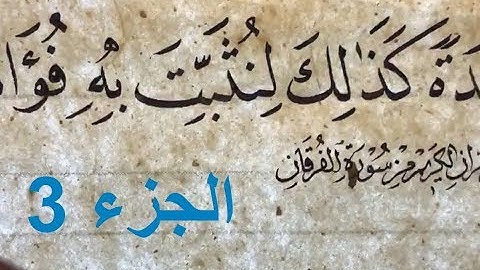 ـدَةً كَذَٰلِكَ لِنُثَبِّتَ بِهِ فُؤَا
الكريم من سورة الفرقان
الجزء 3